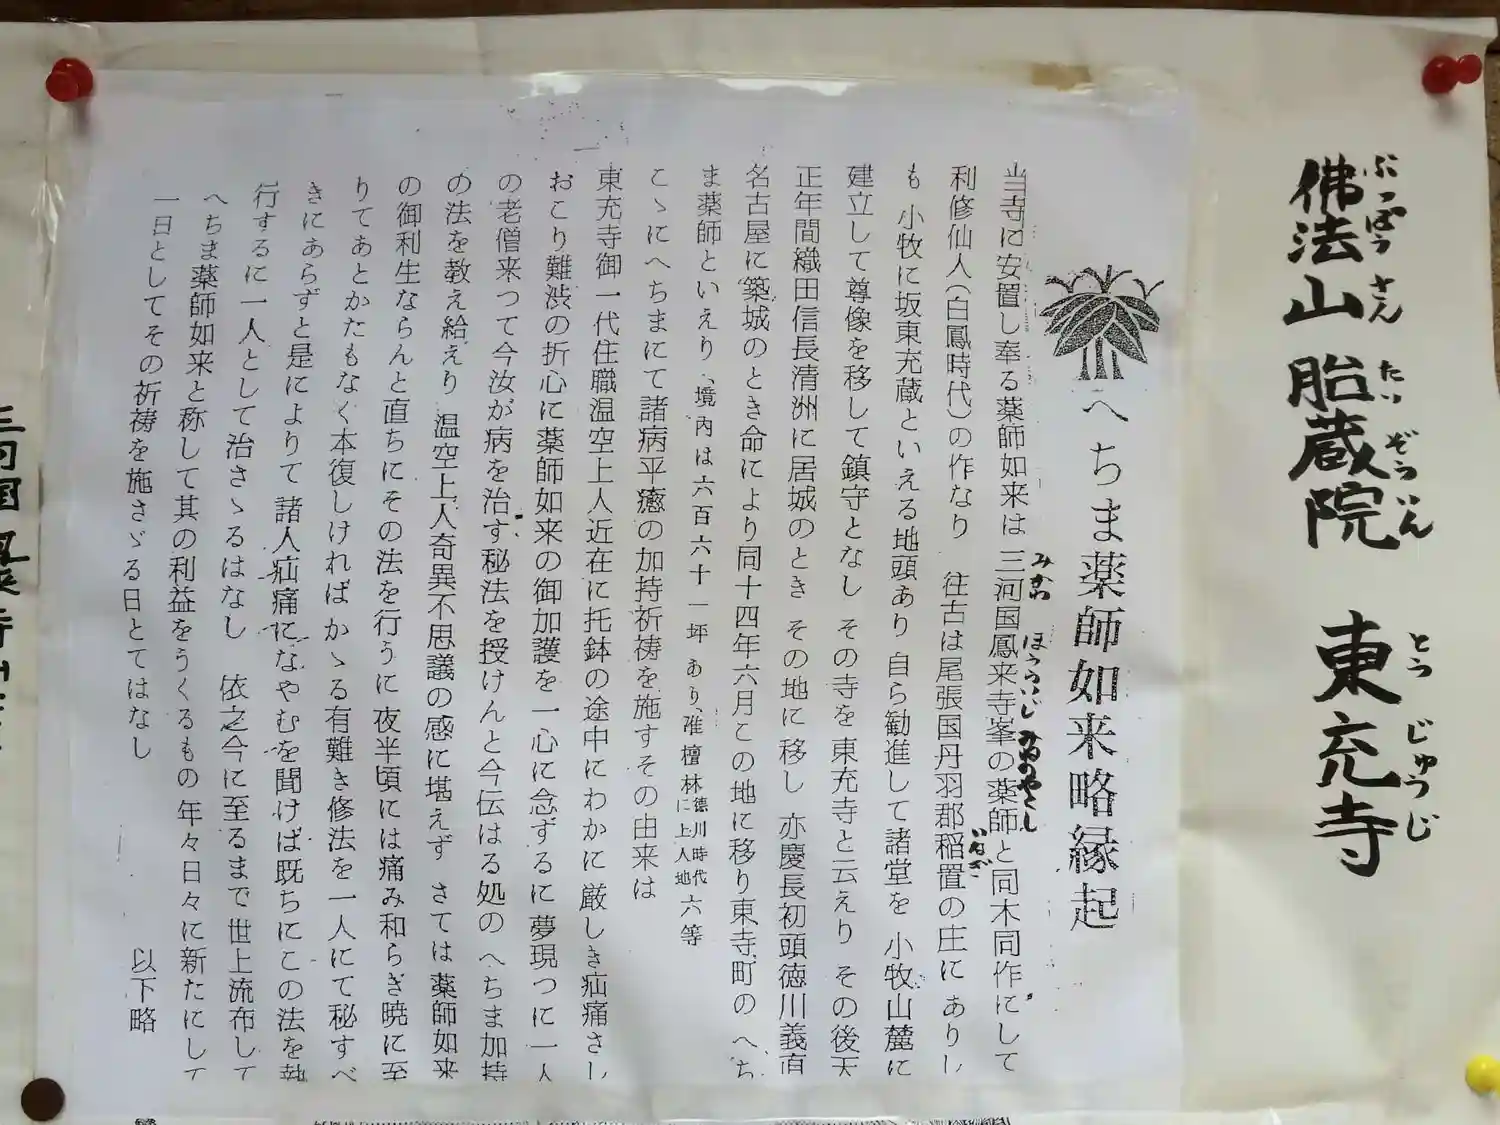 佛法山 胎蔵院 東充寺
ぶっぽうさん たいぞういん とうじゅうじ
へちま薬師如来略縁起
当寺に安置し奉る薬師如来は 三河国鳳来寺峯の薬師と同木同作にして
みかわ ほうらいじ みねのやくし
利修仙人(白鳳時代)の作なり 往古は尾張国丹羽郡稲置の庄に ありし
いなぎ
も 小牧に坂東充蔵といえる地頭あり 自ら勧進して諸堂を 小牧山麓に
建立して尊像を移して鎮守となし その寺を 東充寺と云えり その後天
正年間織田信長清洲に居城のとき その地に移し 亦慶長初頭徳川義直
名古屋に築城のとき命により同十四年六月この地に移り東寺町の へち
ま薬師といえり、境内は六百六十一坪 あり、 檀林 徳川時代に上人地 六等
こゝにへちまにて諸病平癒の加持祈祷を施すその由来は
東充寺御一代住職温空上人近在に托鉢の途中にわかに厳しき疝痛さし
おこり難渋の折心に薬師如来の御加護を一心に念ずるに夢現つに一人
の老僧来つて今汝が病を治す秘法を授けんと今伝はる処の へちま加持
の法を教え給えり 温空上人奇異不思議の感に堪えず さては薬師如来
の御利生ならんと直ちにその法を行うに夜半頃には痛み和らぎ暁に至
りてあとかたもなく本復しければかゝる有難き修法を一人にて秘すべ
きにあらずと是によりて諸人疝痛になやむを聞けば既ちにこの法を執
行するに一人として治さゝるはなし 依之今に至るまで世上流布して
へちま薬師如来と称して其の利益をうくるもの年々日々に新たにして
一日としてその祈祷を施さゞる日とてはなし
以下略